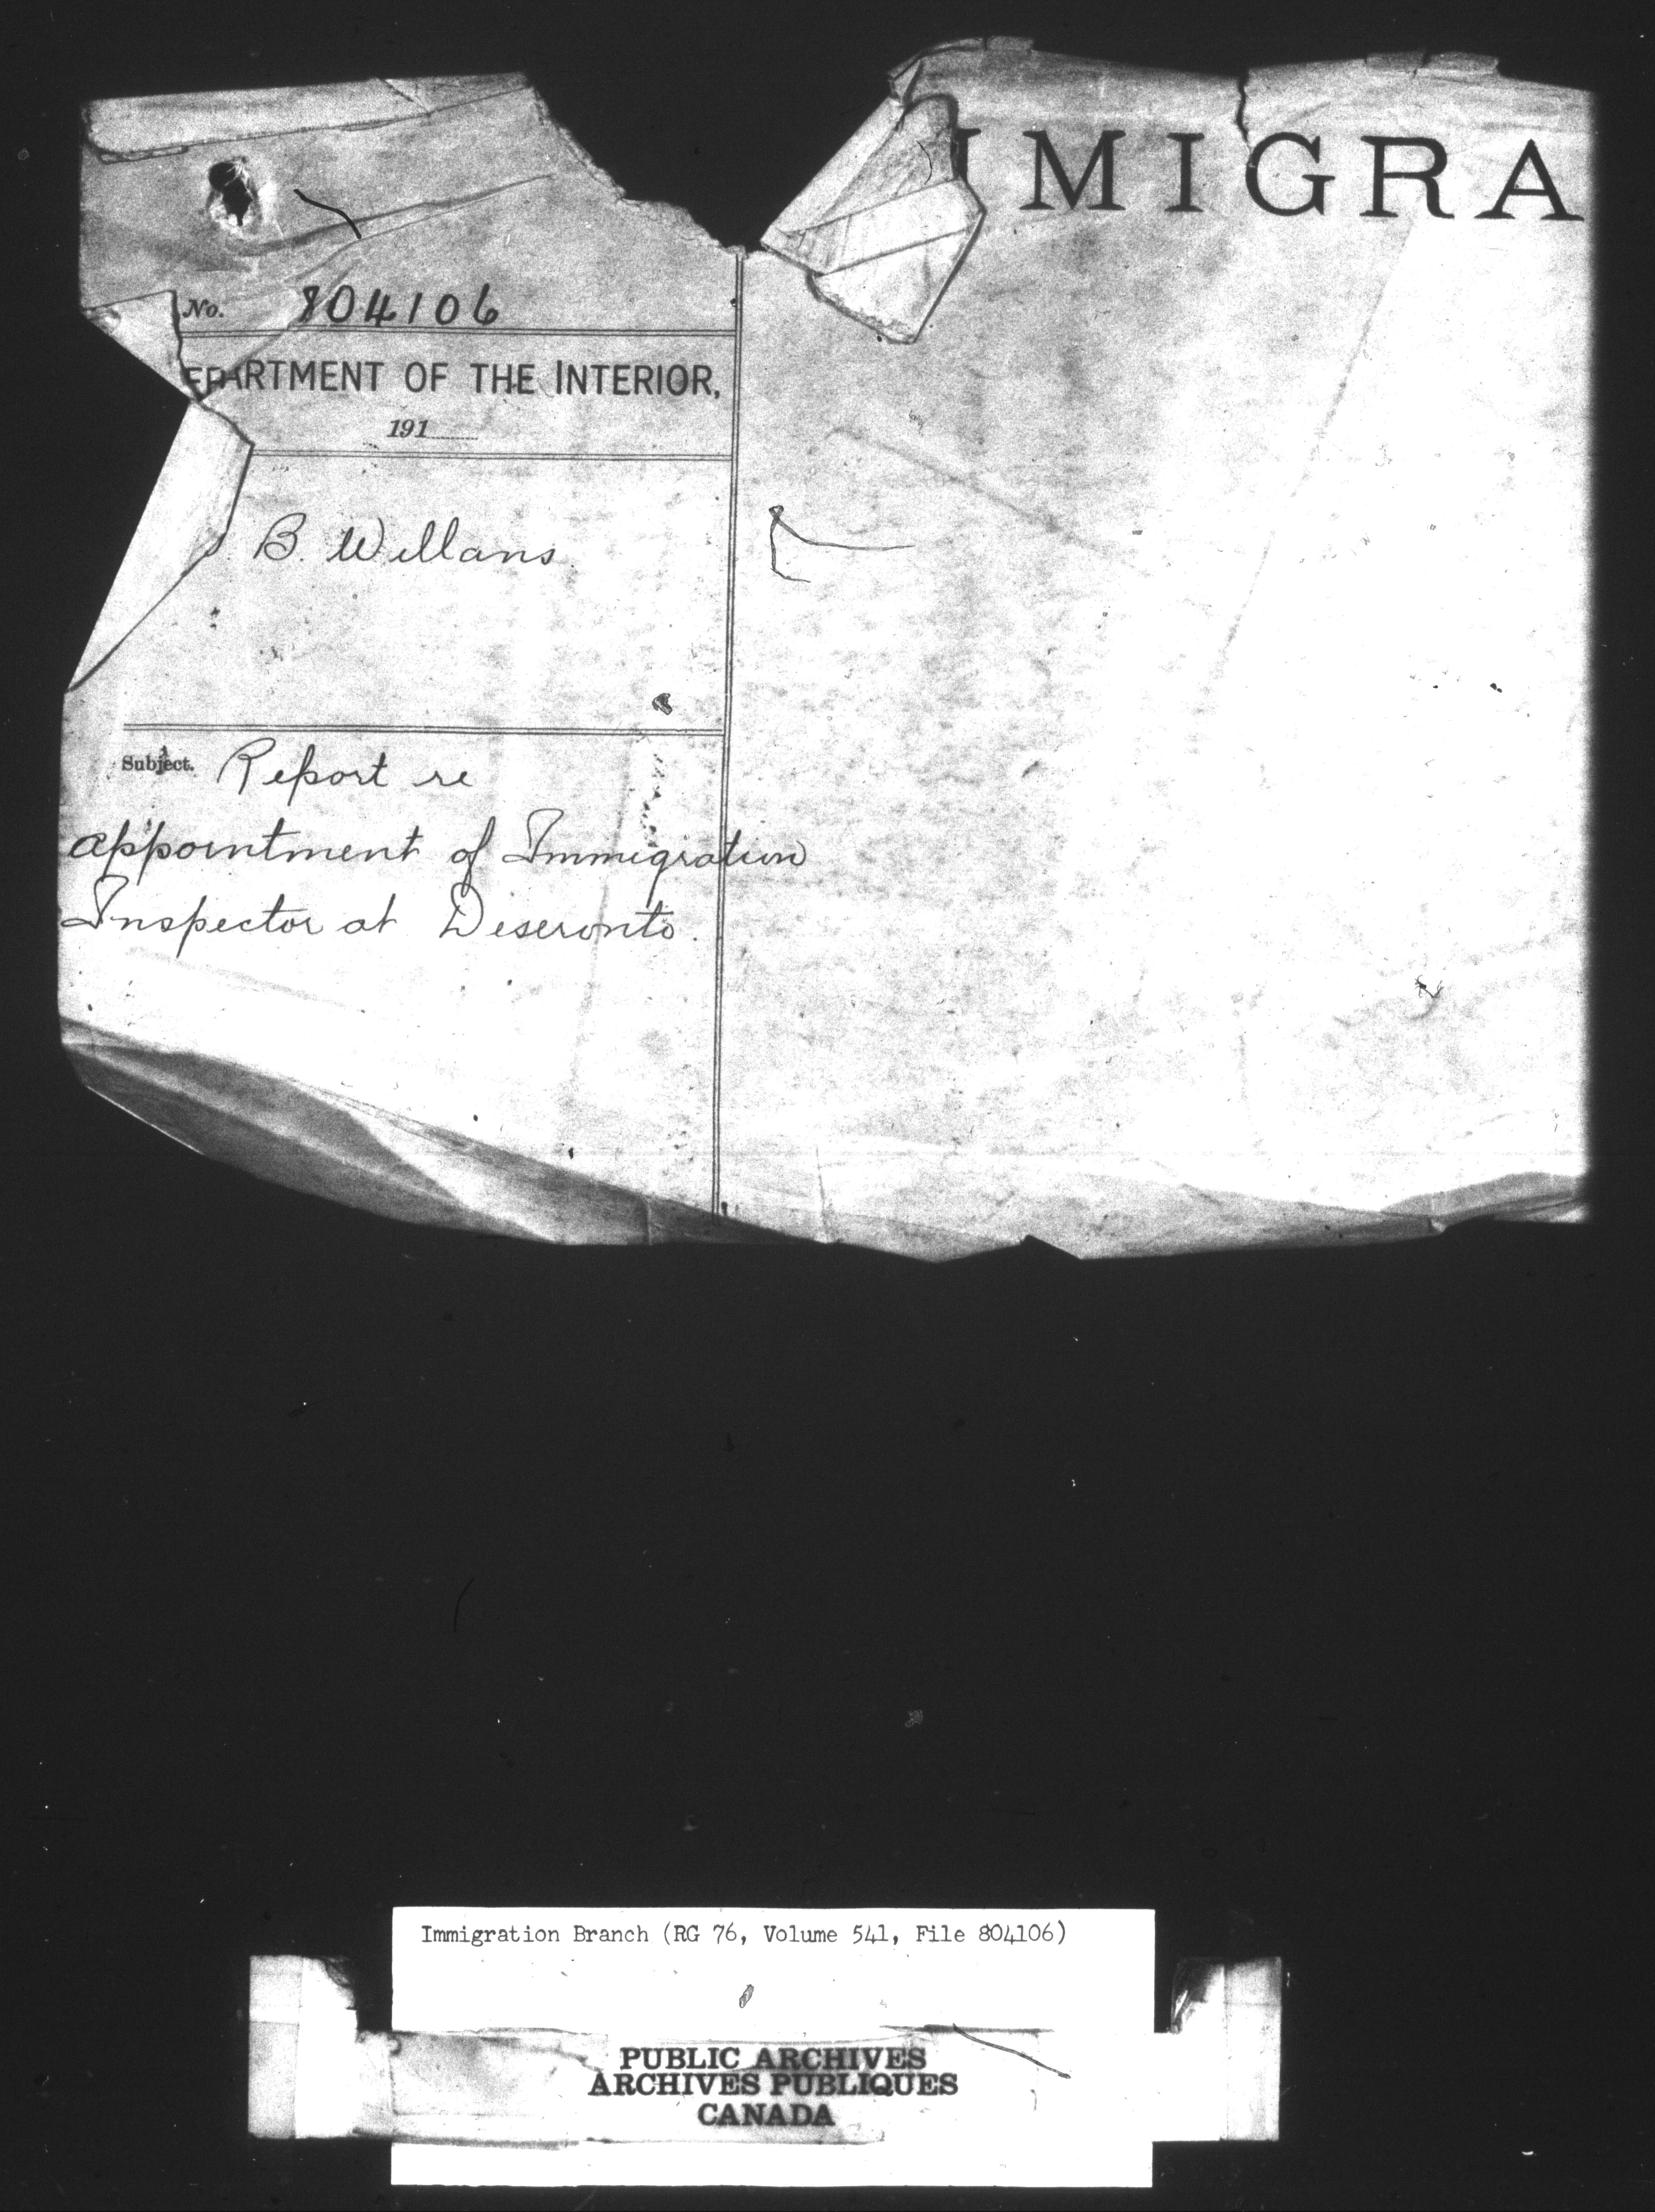 IMMIGRA
No. 804106
EPARTMENT OF THE INTERIOR,
191
B. Willans
Subject. Report re
appointment of Immigration
Inspector at Deseronto.
Immigration Branch (RG 76, Volume 541, File 804106)
PUBLIC ARCHIVES
ARCHIVES PUBLIQUES
CANADA